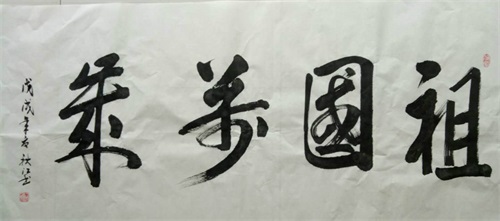 祖國萬歲
戊戌年春